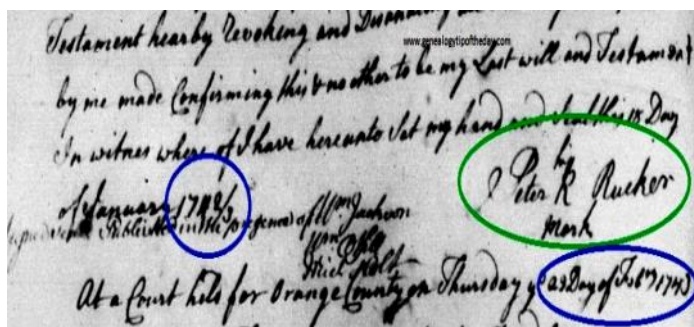 Testament hearby Revoking and
www.genealogytipoftheday.com
by me made Confirming this & no other to be my Last will and Testament
In witness where of I have hereunto Set my hand and Seal this 18 Day
his
Peter R Rucker
mark
of January 1742/3
Publish in the presence of Wm Jackson
At a Court held for Orange County on Thursday ye 23 Day of Febry 1742